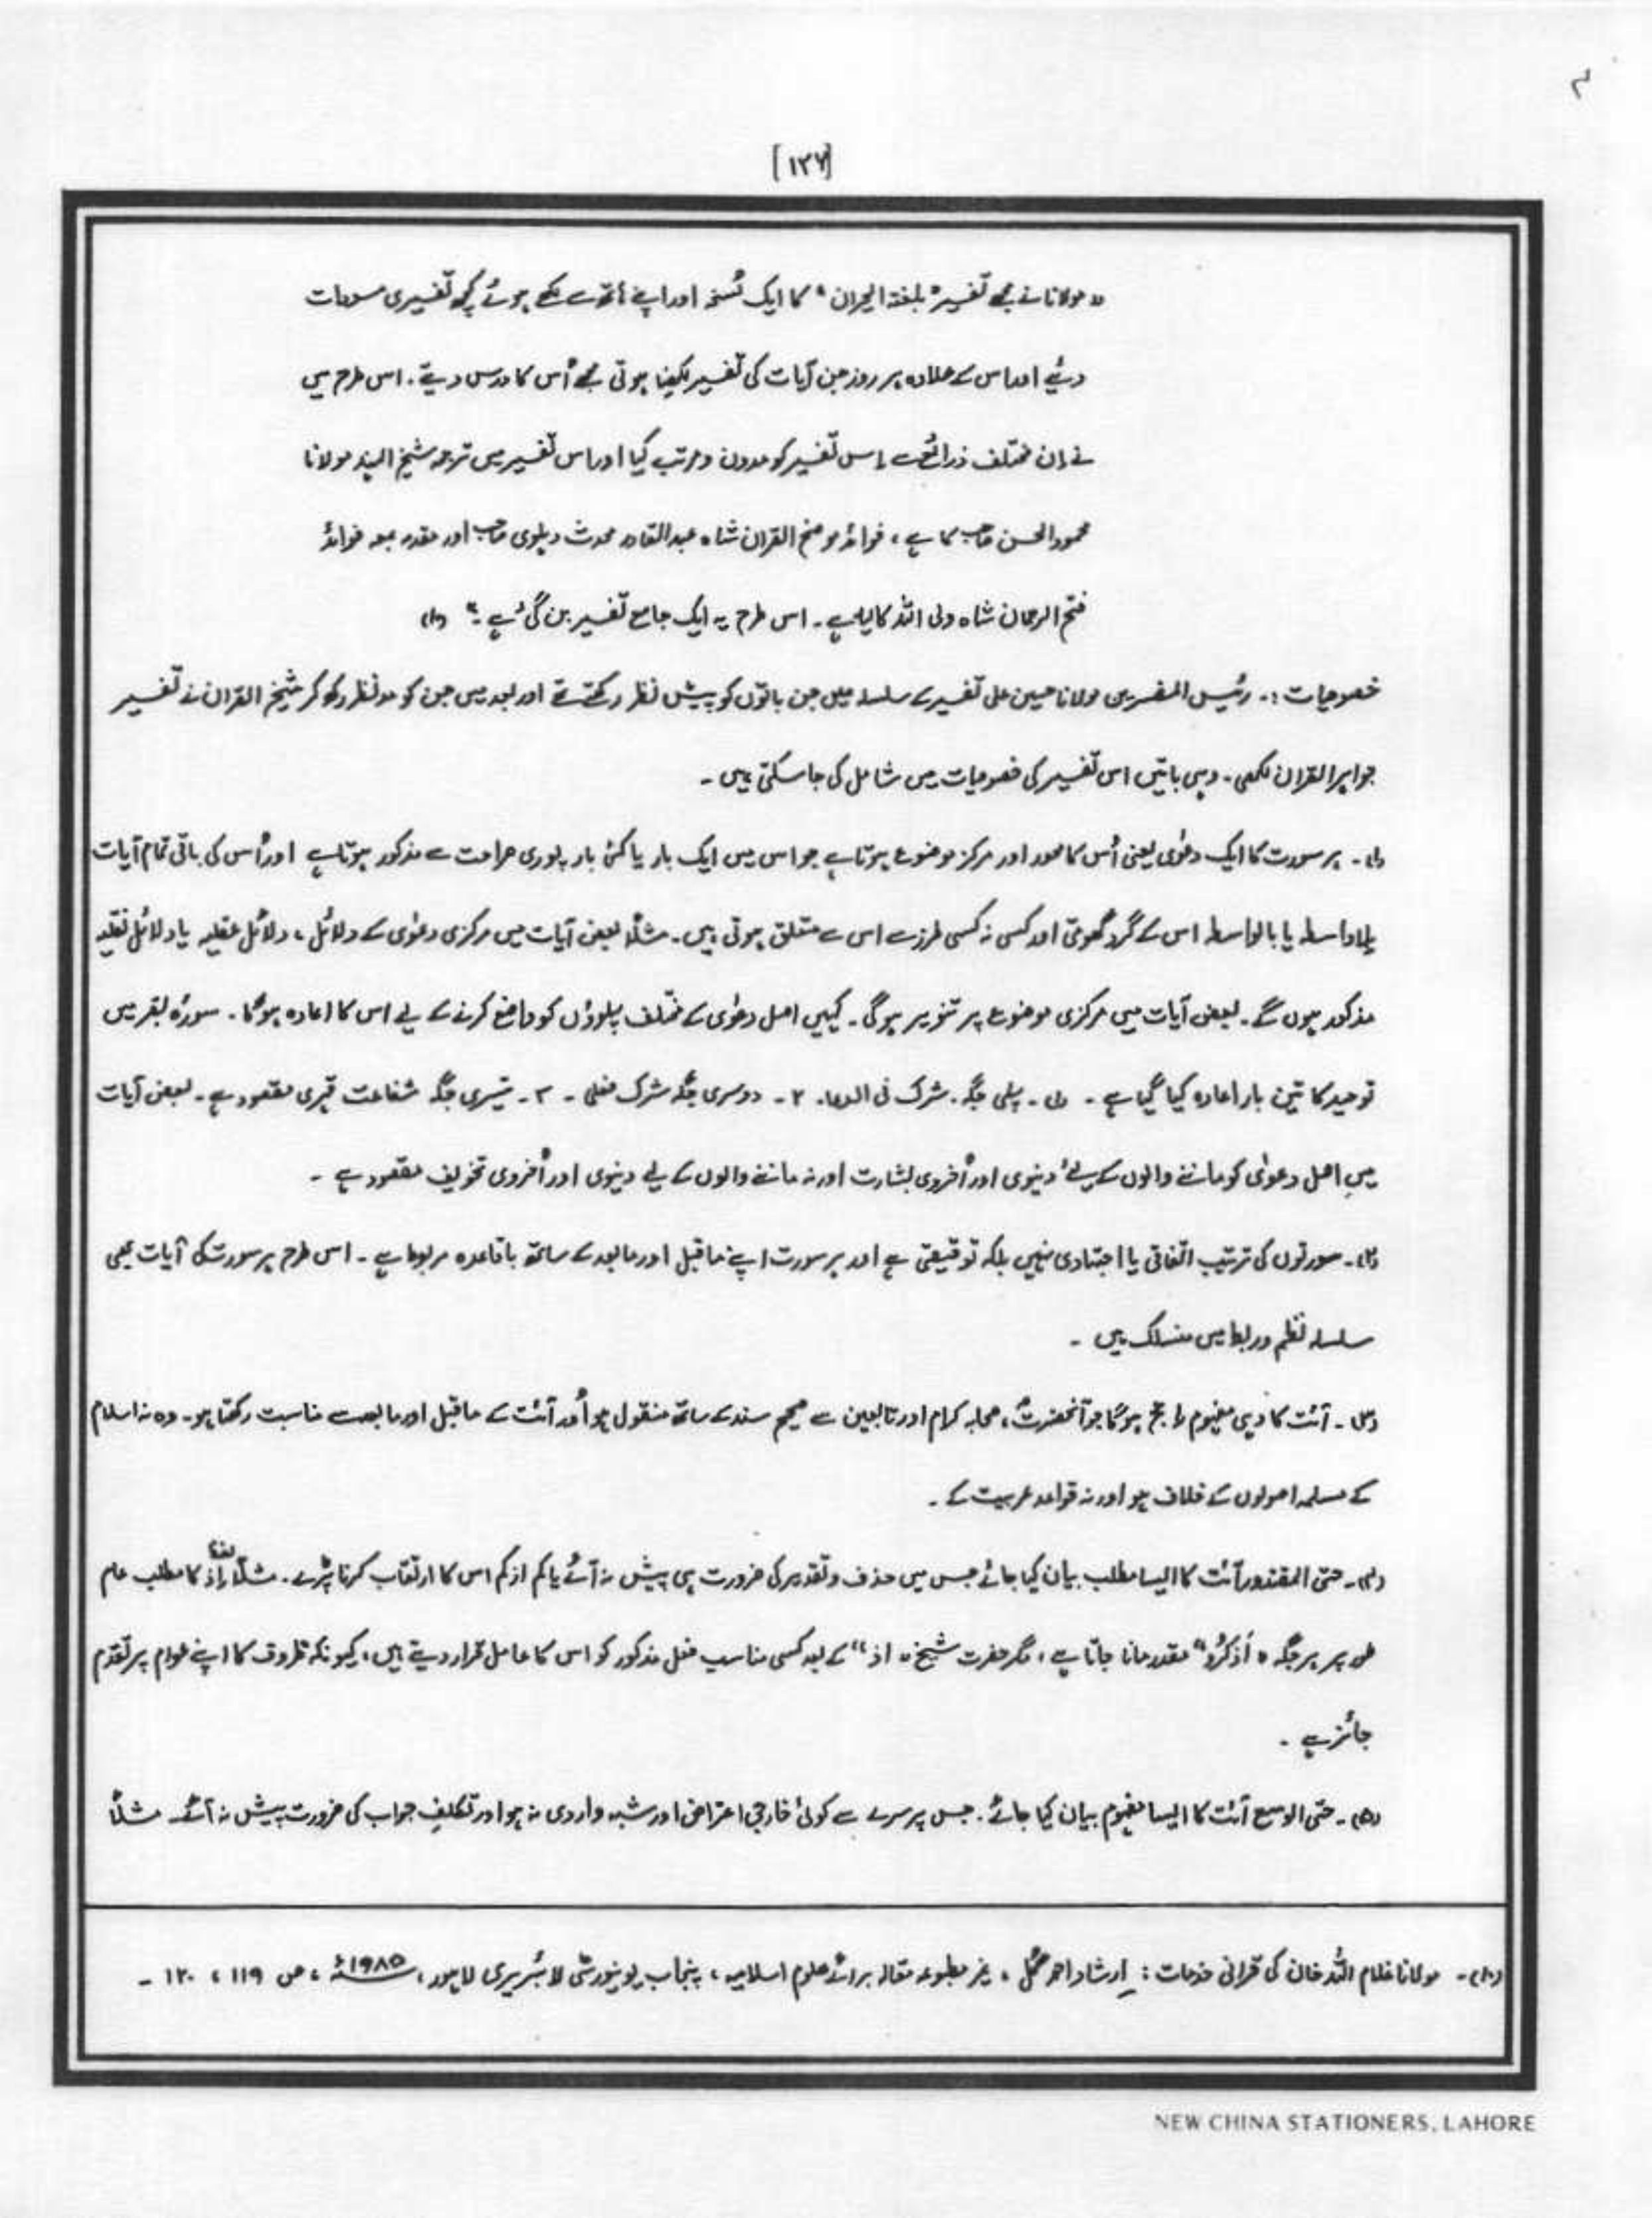 [۱۳۶]
"مولانا نے مجھے تفسیر "بلغۃ الحیران" کا ایک نسخہ اور اپنے ہاتھ سے لکھے ہوئے کچھ تفسیری مسودات
دئیے اور اس کے علاوہ ہر روز جن آیات کی تفسیر لکھنا ہوتی مجھے اُس کا درس دیتے۔ اس طرح میں
نے اِن مختلف ذرائع سے اِس تفسیر کو مدون و مرتب کیا اور اس تفسیر میں ترجمہ شیخ الہند مولانا
محمود الحسن صاحب کا ہے، فوائد موضح القرآن شاہ عبدالقادر محدث دہلوی صاحب اور مقدمہ بمعہ فوائد
فتح الرحمان شاہ ولی اللہ کا لیا ہے۔ اس طرح یہ ایک جامع تفسیر بن گئی ہے۔" (۱)
خصوصیات :۔ رئیس المفسرین مولانا حسین علی تفسیر کے سلسلہ میں جن باتوں کو پیش نظر رکھتے تھے اور بعد میں جن کو مدنظر رکھ کر شیخ القرآن نے تفسیر
جواہر القرآن لکھی۔ وہی باتیں اس تفسیر کی خصوصیات میں شامل کی جا سکتی ہیں۔
(۱)۔ ہر سورت کا ایک دعوٰی یعنی اُس کا محور اور مرکز موضوع ہوتا ہے جو اس میں ایک بار یا کئی بار پوری صراحت سے مذکور ہوتا ہے اور اُس کی باقی تمام آیات
بلاواسطہ یا بالواسطہ اس کے گرد گھومتی اور کسی نہ کسی طرز سے اس سے متعلق ہوتی ہیں۔ مثلاً بعض آیات میں مرکزی دعوٰی کے دلائل، دلائل عقلیہ یا دلائل نقلیہ
مذکور ہوں گے۔ بعض آیات میں مرکزی موضوع پر تنویر ہوگی۔ کہیں اصل دعوٰی کے مختلف پہلوؤں کو واضح کرنے کے لیے اس کا اعادہ ہوگا۔ سورۂ بقرہ میں
توحید کا تین بار اعادہ کیا گیا ہے۔ (۱)۔ پہلی جگہ شرک فی الدعا۔ ۲۔ دوسری جگہ شرک فعلی۔ ۳۔ تیسری جگہ شفاعت قہری مقصود ہے۔ بعض آیات
میں اصل دعوٰی کو ماننے والوں کے لیے دنیوی اور اُخروی بشارت اور نہ ماننے والوں کے لیے دنیوی اور اُخروی تخویف مقصود ہے۔
(۲)۔ سورتوں کی ترتیب اتفاقی یا اجتہادی نہیں بلکہ توقیفی ہے اور ہر سورت اپنے ماقبل اور مابعد کے ساتھ باقاعدہ مربوط ہے۔ اس طرح ہر سورت کی آیات بھی
سلسلہ نظم و ربط میں منسلک ہیں۔
(۳)۔ آئت کا وہی مفہوم راجح ہوگا جو آنحضرتؐ، صحابہ کرام اور تابعین سے صحیح سند کے ساتھ منقول ہو اُور آئت کے ماقبل اور مابعد سے مناسبت رکھتا ہو۔ وہ نہ اسلام
کے مسلمہ اصولوں کے خلاف ہو اور نہ قواعد عربیت کے۔
(۴)۔ حتی المقدور آئت کا ایسا مطلب بیان کیا جائے جس میں حذف و تقدیر کی ضرورت ہی پیش نہ آئے یا کم از کم اس کا ارتکاب کرنا پڑے۔ مثلاً لفظ اِذ کا مطلب عام
طور پر ہر جگہ "اُذکرُو" مقدر مانا جاتا ہے، مگر حضرت شیخ "اذ" کے بعد کسی مناسب فعل مذکور کو اس کا عامل قرار دیتے ہیں، کیونکہ ظروف کا اپنے عوامل پر تقدم
جائز ہے۔
(۵)۔ حتی الوسع آئت کا ایسا مفہوم بیان کیا جائے۔ جس پر سرے سے کوئی خارجی اعتراض اور شبہ وارد ہی نہ ہو اور تکلیف جواب کی ضرورت پیش نہ آئے۔ مثلاً
(۱)۔ مولانا غلام اللہ خان کی قرآنی خدمات: ارشاد احمد گل، غیر مطبوعہ مقالہ برائے علوم اسلامیہ، پنجاب یونیورسٹی لائبریری لاہور، ۱۹۸۵ء، ص ۱۱۹، ۱۲۰۔
NEW CHINA STATIONERS, LAHORE